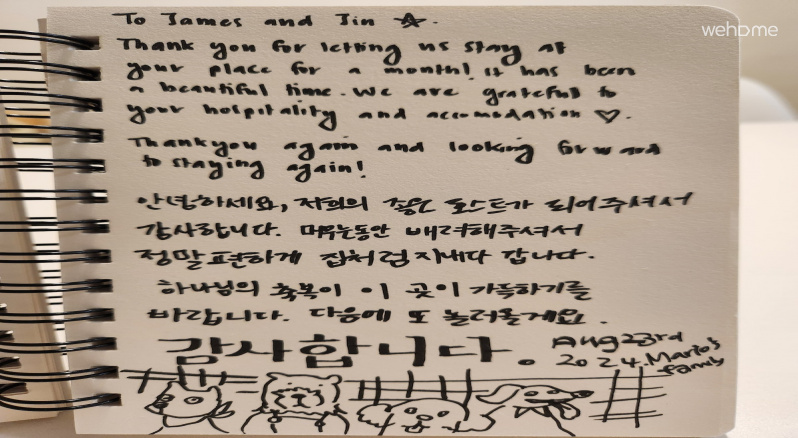 To James and Jin ☆.
Thank you for letting us stay at
your place for a month! it has been
a beautiful time. We are grateful to
your hospitality and accomodation ♡.
Thankyou again and looking forward
to staying again!
안녕하세요, 저희의 좋은 호스트가 되어주셔서
감사합니다. 머무는동안 배려해주셔서
정말 편하게 집처럼 지내다 갑니다.
하나님의 축복이 이 곳이 가득하기를
바랍니다. 다음에 또 놀러올게요.
감사합니다.
Aug 23rd
2024. Mario's
family
wehome